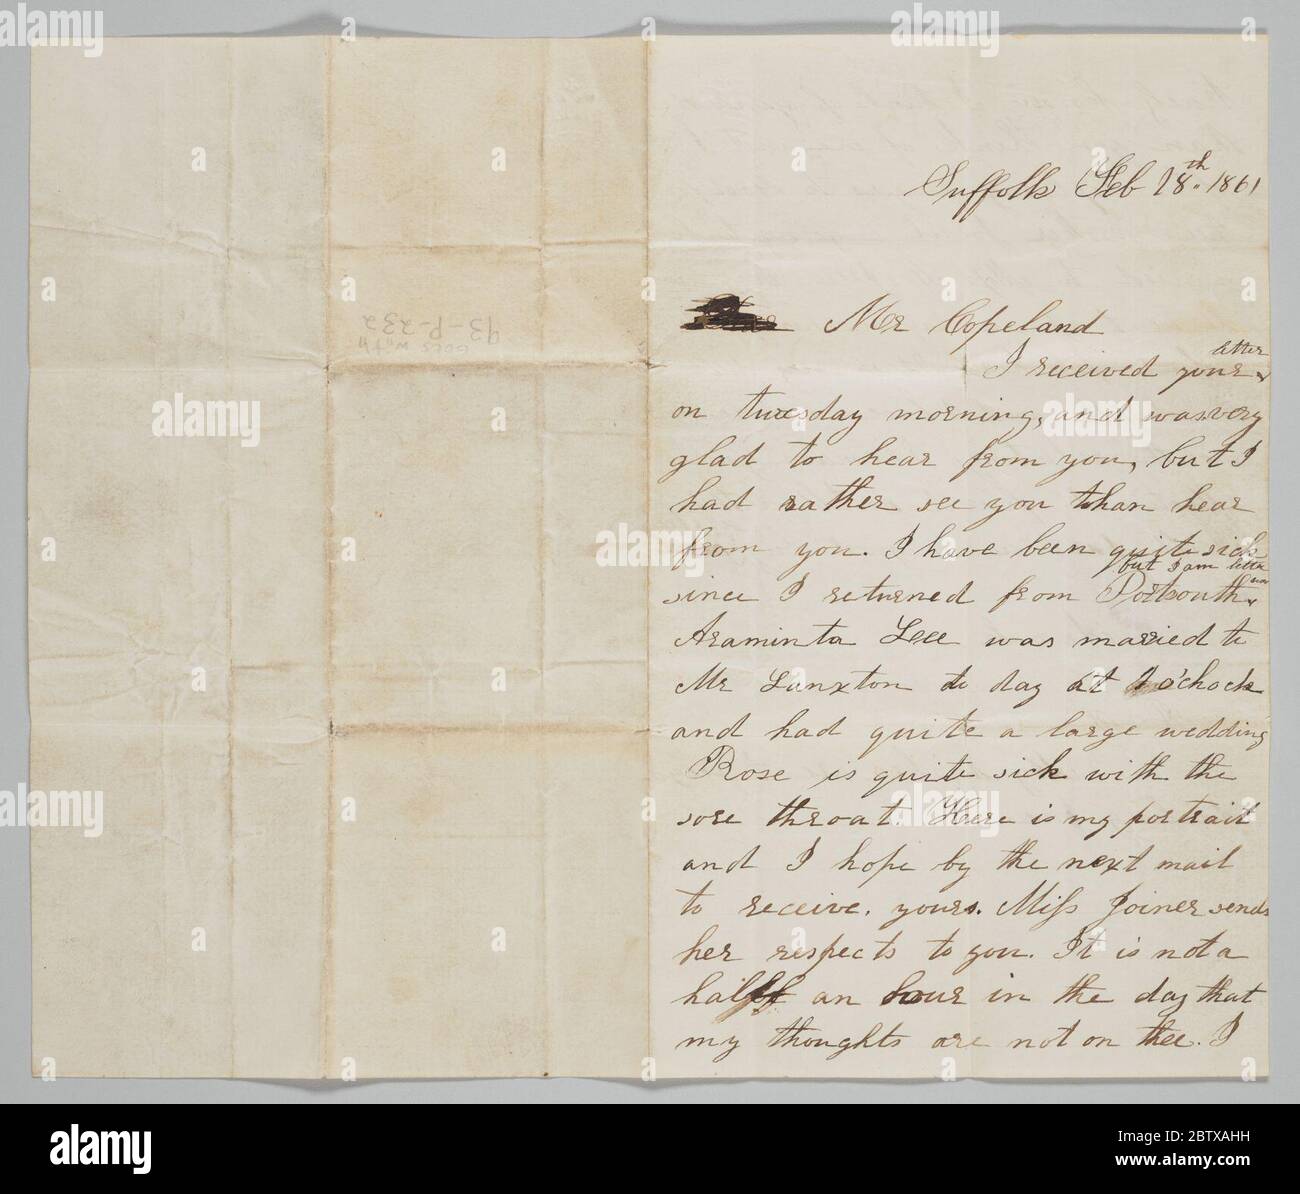 Suffolk Feb 18th 1861
Mr Copeland
I received your letter
on tuesday morning, and was very
glad to hear from you, but I
had rather see you than hear
from you. I have been quite sick
since I returned from Portsouth
but I am better
Araminta Lee was married to
Mr Lanxton to day at o'chock
and had quite a large wedding
Rose is quite sick with the
sore throat. Here is my portrait
and I hope by the next mail
to receive. yours. Miss Joiner sends
her respects to you. It is not a
half an hour in the day that
my thoughts are not on thee. I
goes with
93-P-232
alamy
Image ID: 2BTXAHH
www.alamy.com